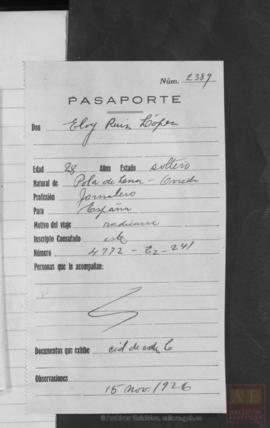 Núm. 2389
PASAPORTE
Don Eloy Ruiz López
Edad 28 Años Estado soltero
Natural de Pola de Lena - Oviedo
Profesión Jornalero
Para España
Motivo del viaje radicarse
Inscripto Consulado este
Número 4772 - Ez - 241
Personas que lo acompañan:
Documentos que exhibe céd de este C
Observaciones
15 Nov. 1926